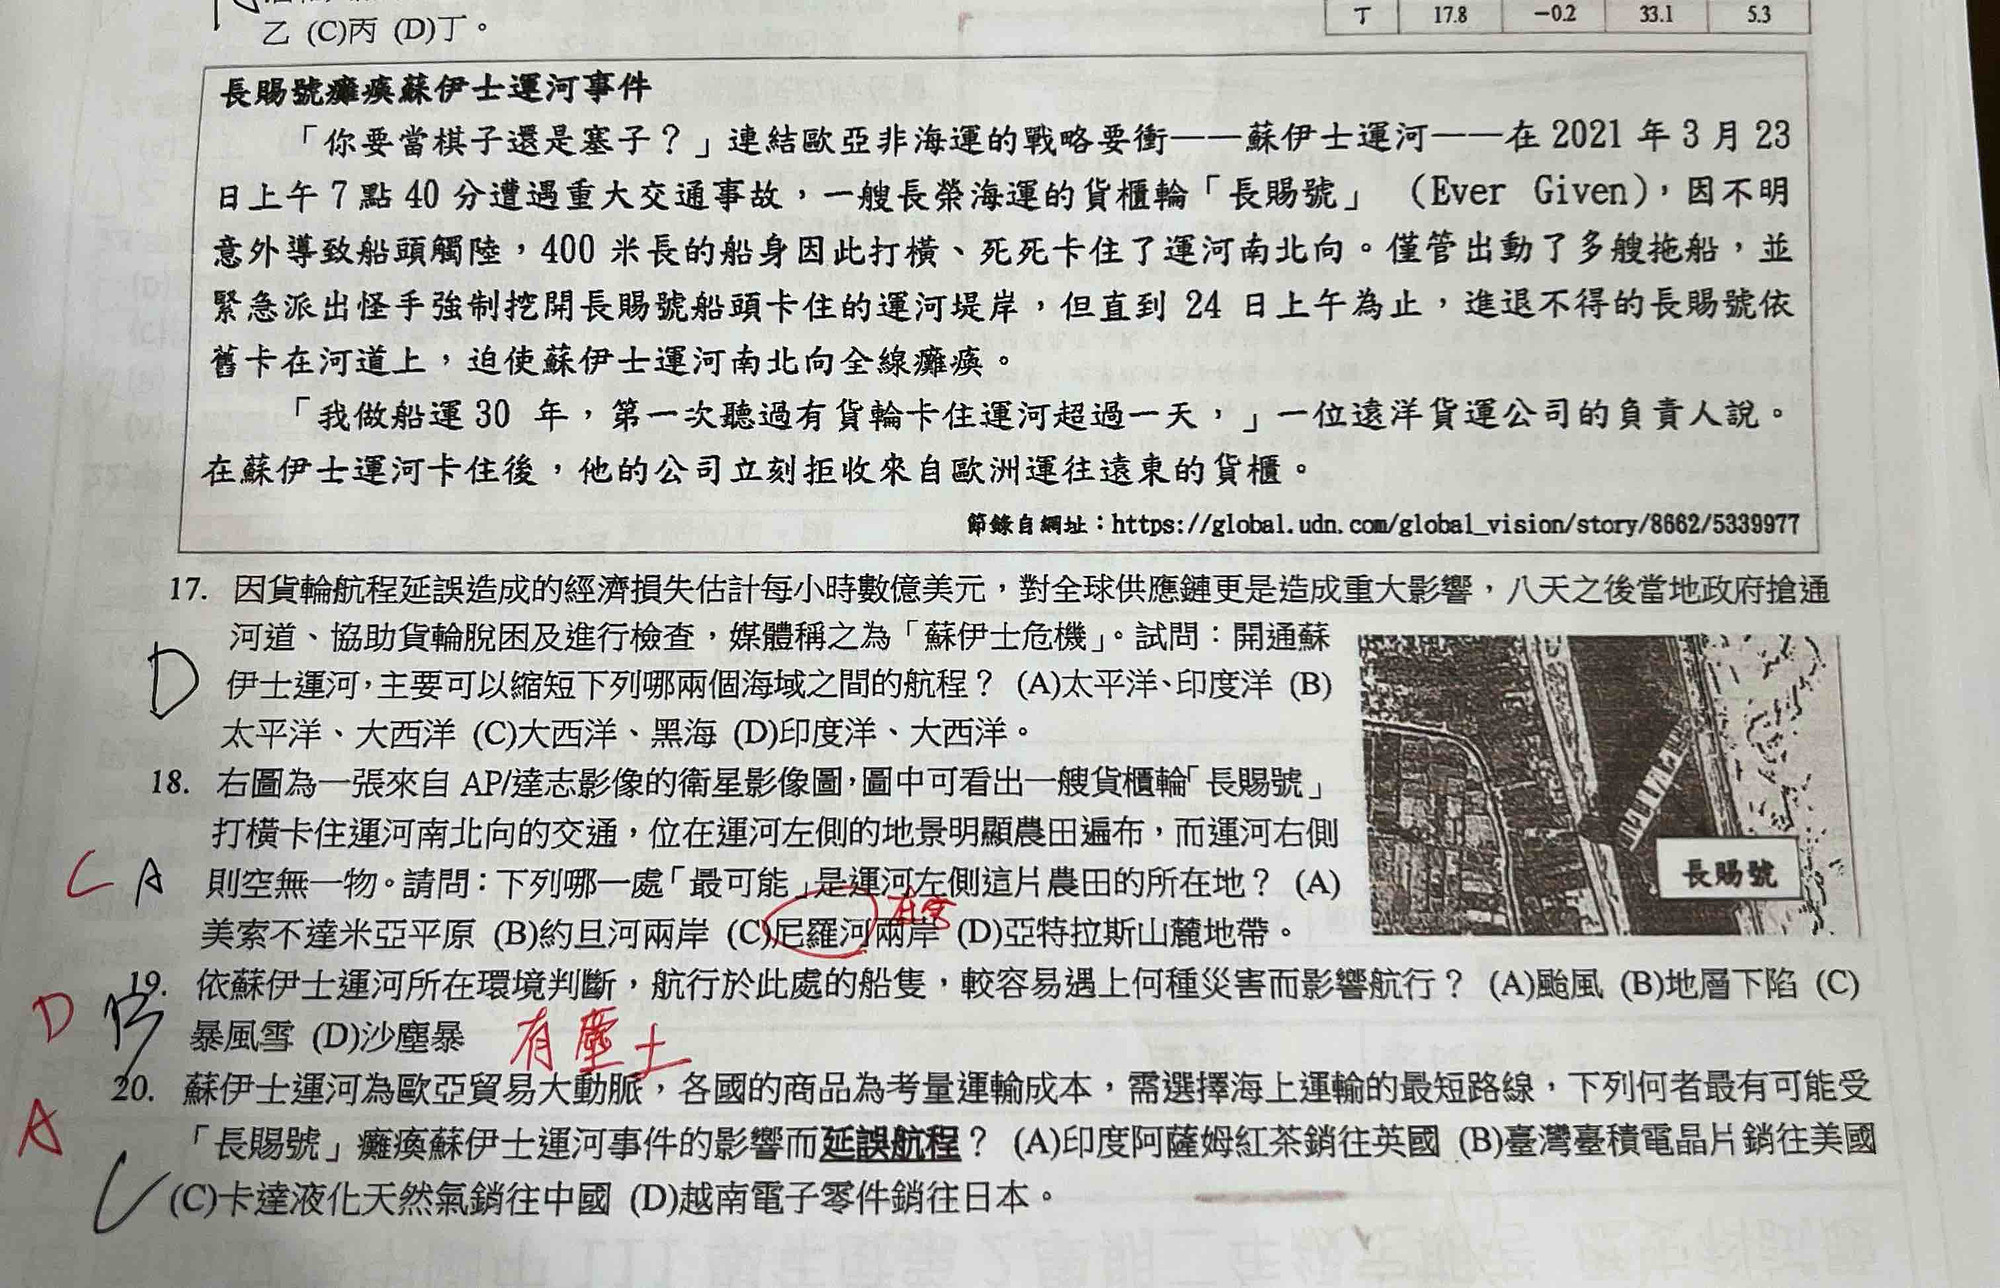 乙 (C)丙 (D)丁。
丁 17.8 −0.2 33.1 5.3
長賜號癱瘓蘇伊士運河事件
「你要當棋子還是塞子？」連結歐亞非海運的戰略要衝——蘇伊士運河——在 2021 年 3 月 23
日上午 7 點 40 分遭遇重大交通事故，一艘長榮海運的貨櫃輪「長賜號」 (Ever Given)，因不明
意外導致船頭觸陸，400 米長的船身因此打橫、死死卡住了運河南北向。僅管出動了多艘拖船，並
緊急派出怪手強制挖開長賜號船頭卡住的運河堤岸，但直到 24 日上午為止，進退不得的長賜號依
舊卡在河道上，迫使蘇伊士運河南北向全線癱瘓。
「我做船運 30 年，第一次聽過有貨輪卡住運河超過一天，」一位遠洋貨運公司的負責人說。
在蘇伊士運河卡住後，他的公司立刻拒收來自歐洲運往遠東的貨櫃。
節錄自網址：https://global.udn.com/global_vision/story/8662/5339977
17. 因貨輪航程延誤造成的經濟損失估計每小時數億美元，對全球供應鏈更是造成重大影響，八天之後當地政府搶通
河道、協助貨輪脫困及進行檢查，媒體稱之為「蘇伊士危機」。試問：開通蘇
D 伊士運河，主要可以縮短下列哪兩個海域之間的航程？ (A)太平洋、印度洋 (B)
太平洋、大西洋 (C)大西洋、黑海 (D)印度洋、大西洋。
18. 右圖為一張來自 AP/達志影像的衛星影像圖，圖中可看出一艘貨櫃輪「長賜號」
打橫卡住運河南北向的交通，位在運河左側的地景明顯農田遍布，而運河右側
C A 則空無一物。請問：下列哪一處「最可能」是運河左側這片農田的所在地？ (A)
美索不達米亞平原 (B)約旦河兩岸 (C)尼羅河兩岸 (D)亞特拉斯山麓地帶。
長賜號
19. 依蘇伊士運河所在環境判斷，航行於此處的船隻，較容易遇上何種災害而影響航行？ (A)颱風 (B)地層下陷 (C)
D B 暴風雪 (D)沙塵暴 有塵土
20. 蘇伊士運河為歐亞貿易大動脈，各國的商品為考量運輸成本，需選擇海上運輸的最短路線，下列何者最有可能受
A 「長賜號」癱瘓蘇伊士運河事件的影響而延誤航程？ (A)印度阿薩姆紅茶銷往英國 (B)臺灣臺積電晶片銷往美國
C (C)卡達液化天然氣銷往中國 (D)越南電子零件銷往日本。